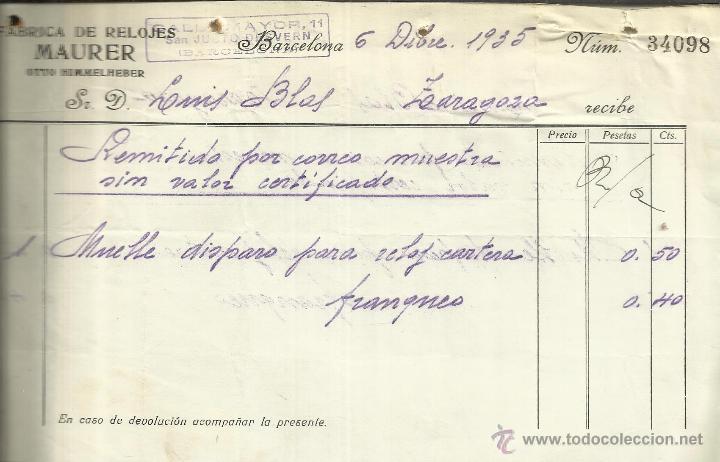 FÁBRICA DE RELOJES
MAURER
OTTO HIMMELHEBER
CALLE MAYOR, 11
San JUSTO DESVERN
(BARCELONA)
Barcelona 6 Dibre. 1935 Núm. 34098
Sr. D. Luis Blas Zaragoza recibe
Precio Pesetas Cts.
Remitido por correo muestra
sin valor certificado
1 Muelle disparo para reloj cartera 0. 50
franqueo 0. 40
En caso de devolución acompañar la presente.
www.todocoleccion.net